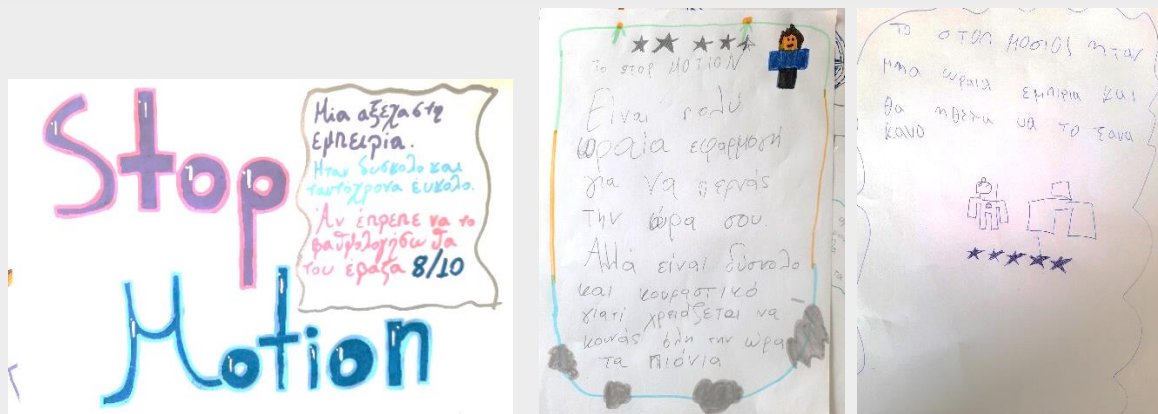 Stop
Motion
Μία αξέχαστη
εμπειρία.
Ήταν δύσκολο και
ταυτόχρονα εύκολο.
Αν έπρεπε να το
βαθμολογήσω θα
του έβαζα 8/10
Το στοπ MOTION
Είναι πολύ
ωραία εφαρμογή
για να περνάς
την ώρα σου.
Αλλά είναι δύσκολο
και κουραστικό
γιατί χρειάζεται να
κουνάς όλη την ώρα
τα πιόνια
το στοπ μοσιος ηταν
μηα ωραια εμπιρια και
θα ηθελα να το ξανα
κανο